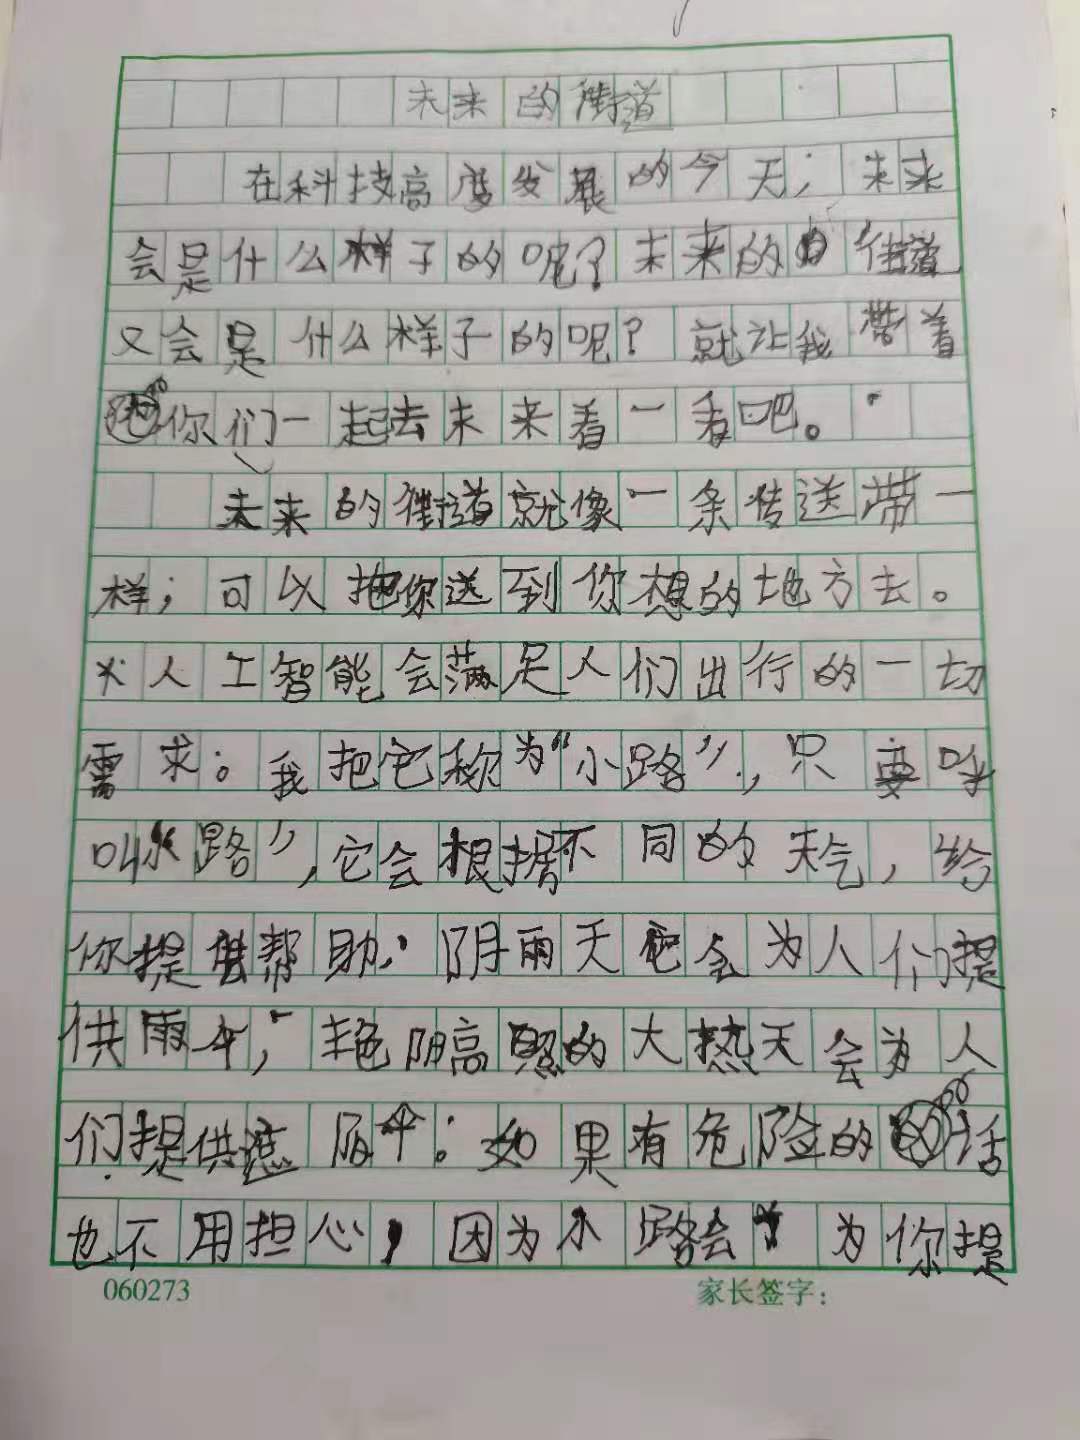 未来的街道
在科技高度发展的今天，未来
会是什么样子的呢？未来的街道
又会是什么样子的呢？就让我带着
你们一起去未来看一看吧。
未来的街道就像一条传送带一
样，可以把你送到你想的地方去。
人工智能会满足人们出行的一切
需求。我把它称为“小路”，只要呼
叫“小路”，它会根据不同的天气，给
你提供帮助，阴雨天它会为人们提
供雨伞，艳阳高照的大热天会为人
们提供遮阳伞。如果有危险的话
也不用担心，因为小路会为你提
060273
家长签字：